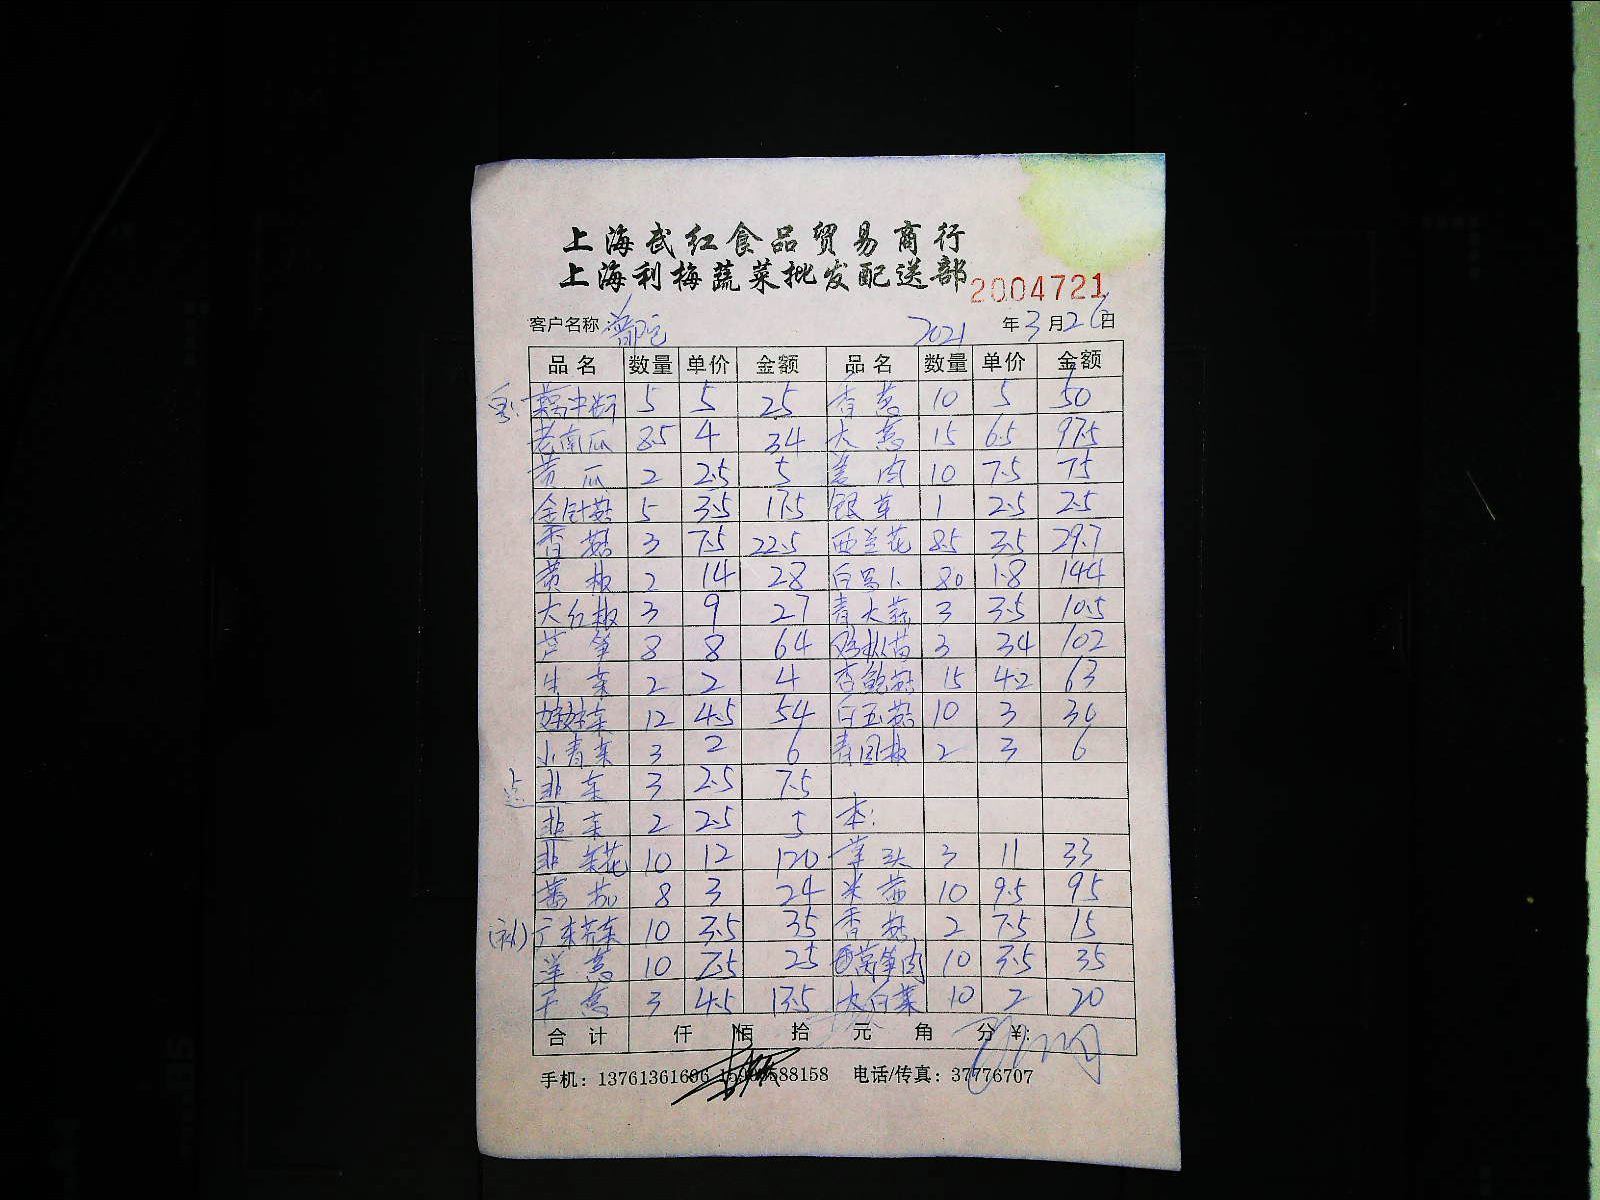 上海武红食品贸易商行
上海利梅蔬菜批发配送部
2004721
客户名称: 2021年3月26日
品名 数量 单价 金额 品名 数量 单价 金额
5 5 25 香葱 10 5 50
老南瓜 8.5 4 34 大葱 15 6.5 97.5
黄瓜 2 2.5 5 姜肉 10 7.5 75
金针菇 5 3.5 17.5 银芽 1 2.5 2.5
香菇 3 7.5 22.5 西兰花 8.5 3.5 29.7
黄椒 2 14 28 白萝卜 80 1.8 144
大红椒 3 9 27 青大蒜 3 3.5 10.5
芦笋 8 8 64 鸡枞菌 3 34 102
生菜 2 2 4 杏鲍菇 15 4.2 63
娃娃菜 12 4.5 54 白玉菇 10 3 30
小青菜 3 2 6 青圆椒 2 3 6
点 韭菜 3 2.5 7.5
韭菜 2 2.5 5 本:
韭菜花 10 12 120 草头 3 11 33
蕃茄 8 3 24 米苋 10 9.5 95
(补) 广东芥菜 10 3.5 35 香菇 2 7.5 15
洋葱 10 2.5 25 莴笋肉 10 3.5 35
干葱 3 4.5 13.5 大白菜 10 2 20
合计 仟 佰 拾 元 角 分 ¥:
手机: 13761361606 电话/传真: 37776707